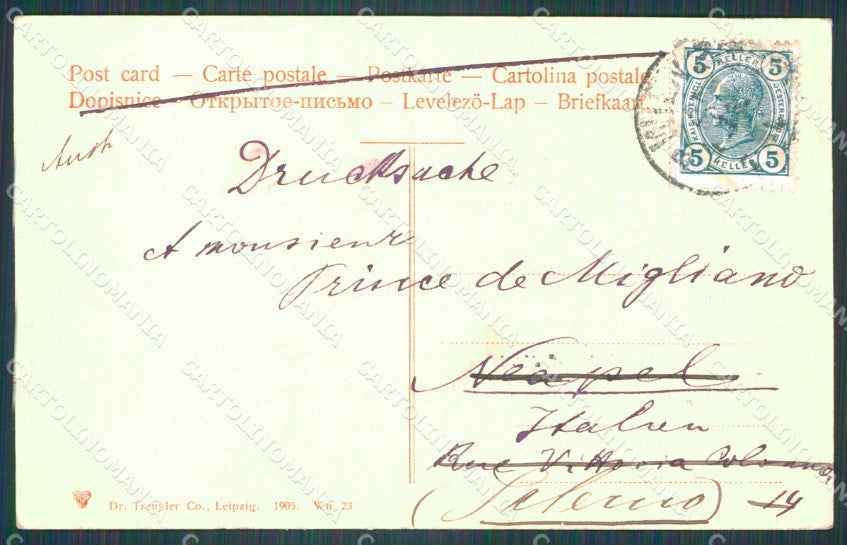 Post card — Carte postale — Postkarte — Cartolina postale
Dopisnice — Открытое-письмо — Levelező-Lap — Briefkaart
5 HELLER 5
5 HELLER 5
Drucksache
A monsieur
Prince de Migliano
Neapel
Italien
Rue Vittoria Colonna
(Salerno) 14
Dr. Trenkler Co., Leipzig. 1905. Wn. 23
CARTOLINOMANIA